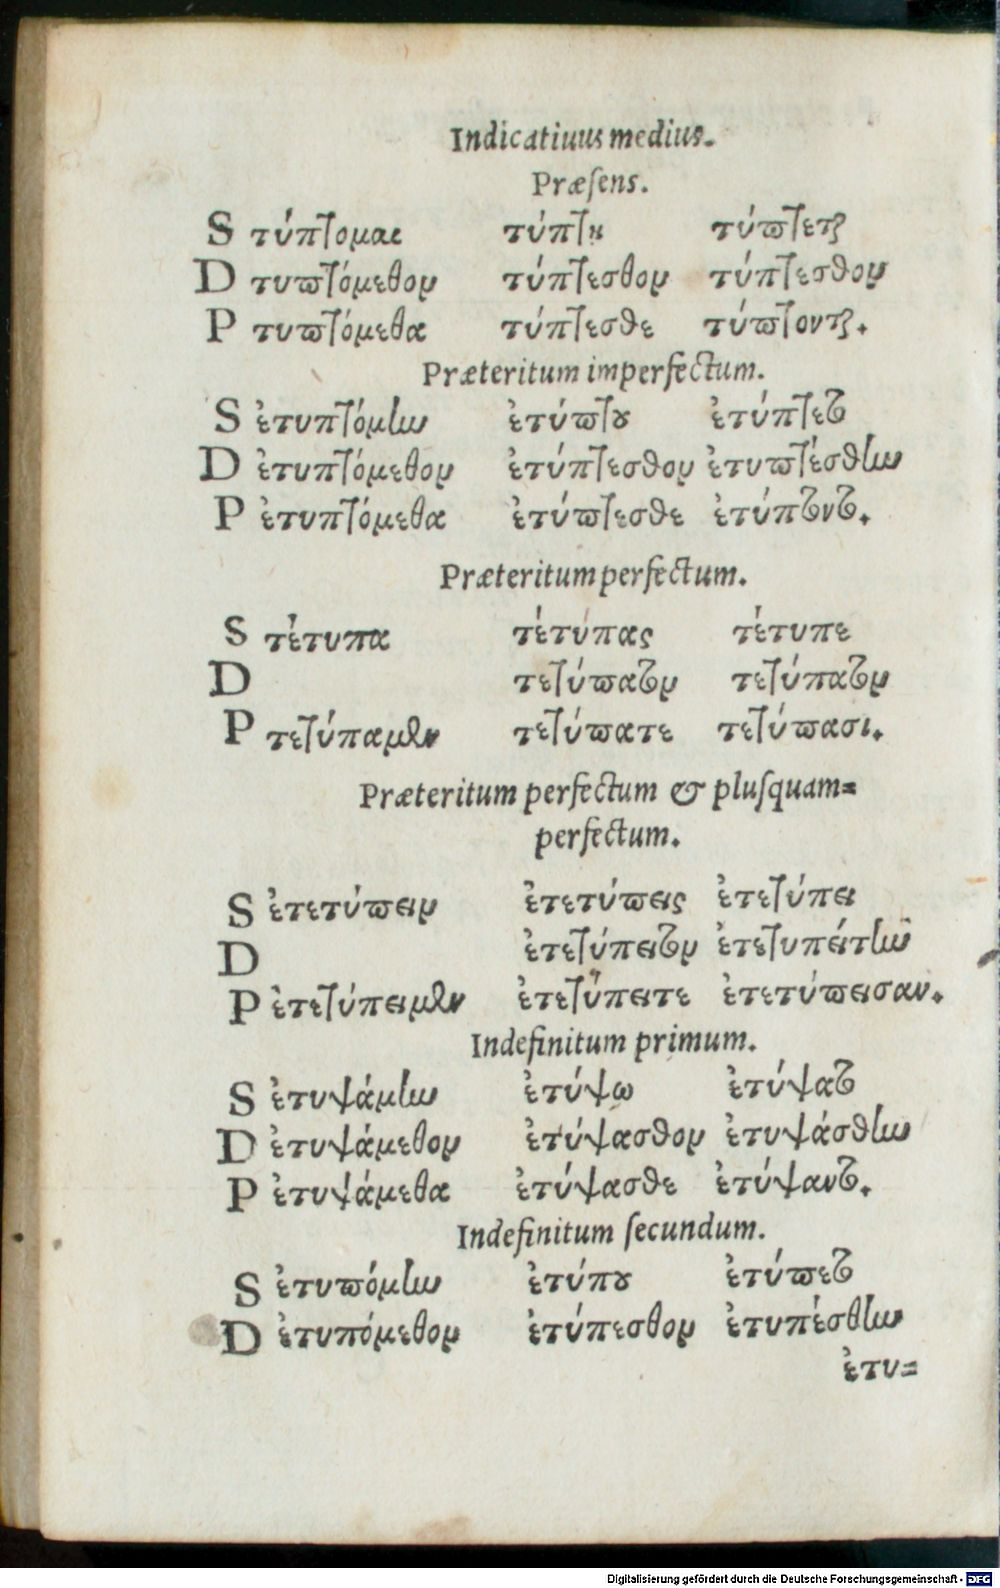 Indicatiuus medius.
Præsens.
S τύπτομαι τύπτῃ τύπτεται
D τυπτόμεθον τύπτεσθον τύπτεσθον
P τυπτόμεθα τύπτεσθε τύπτονται.
Præteritum imperfectum.
S ἐτυπτόμην ἐτύπτου ἐτύπτετο
D ἐτυπτόμεθον ἐτύπτεσθον ἐτυπτέσθην
P ἐτυπτόμεθα ἐτύπτεσθε ἐτύπτοντο.
Præteritum perfectum.
S τέτυπα τέτύπας τέτυπε
D τετύπατον τετύπατον
P τετύπαμεν τετύπατε τετύπασι.
Præteritum perfectum & plusquam=
perfectum.
S ἐτετύπειν ἐτετύπεις ἐτετύπει
D ἐτετύπειτον ἐτετυπείτην
P ἐτετύπειμεν ἐτετύπειτε ἐτετύπεισαν.
Indefinitum primum.
S ἐτυψάμην ἐτύψω ἐτύψατο
D ἐτυψάμεθον ἐτύψασθον ἐτυψάσθην
P ἐτυψάμεθα ἐτύψασθε ἐτύψαντο.
Indefinitum secundum.
S ἐτυπόμην ἐτύπου ἐτύπετο
D ἐτυπόμεθον ἐτύπεσθον ἐτυπέσθην
ἐτυ=
Digitalisierung gefördert durch die Deutsche Forschungsgemeinschaft - DFG